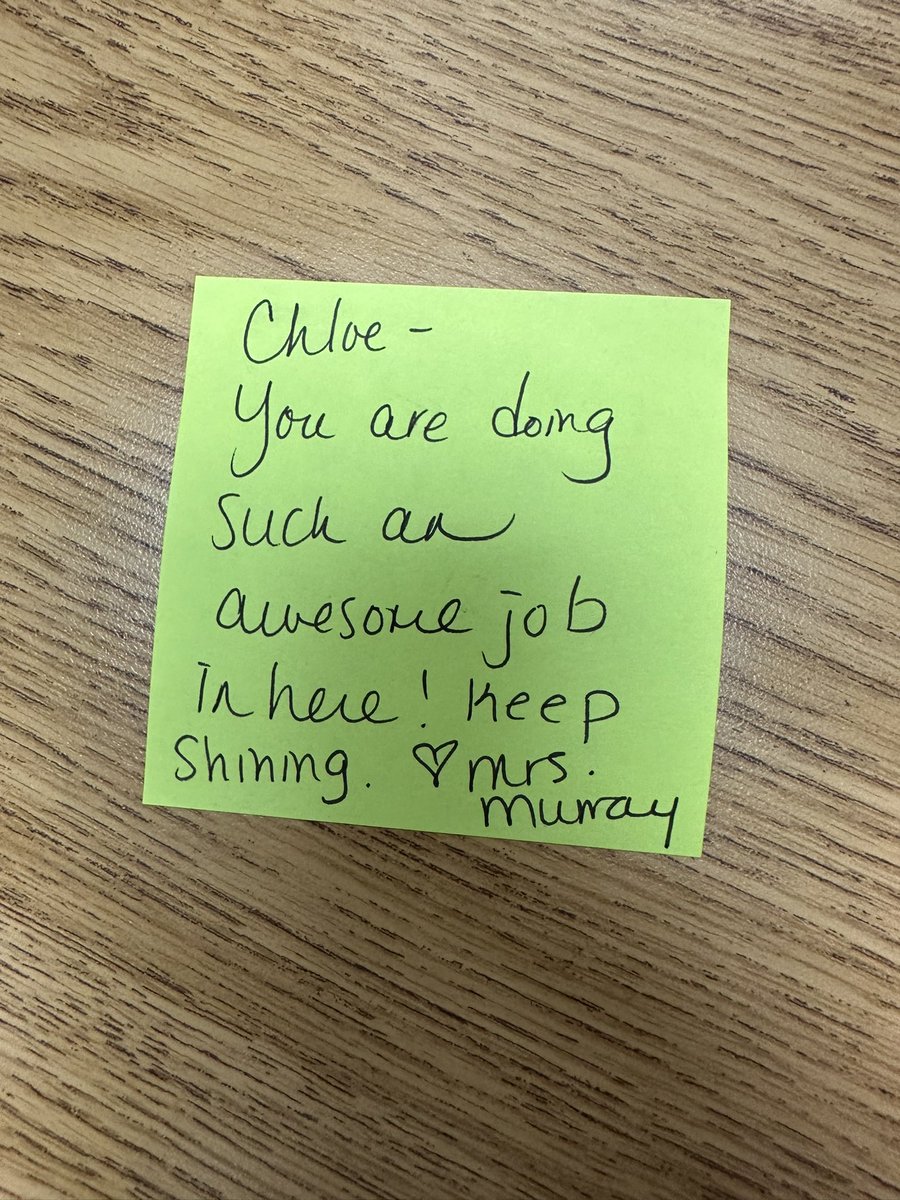 Chloe -
You are doing
such an
awesome job
In here! Keep
Shining. ♡ mrs.
murray